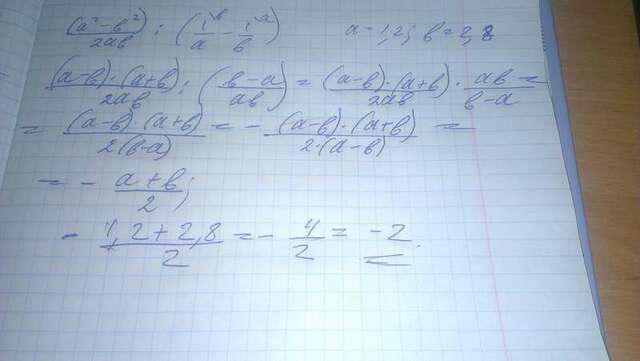 (a²-b²)/2ab : (1/a - 1/b) a=1,2; b=2,8
(a-b)·(a+b)/2ab : (b-a/ab) = (a-b)·(a+b)/2ab · ab/b-a =
= (a-b)·(a+b)/2(b-a) = - (a-b)·(a+b)/2·(a-b) =
= - a+b/2;
- 1,2+2,8/2 = - 4/2 = -2.